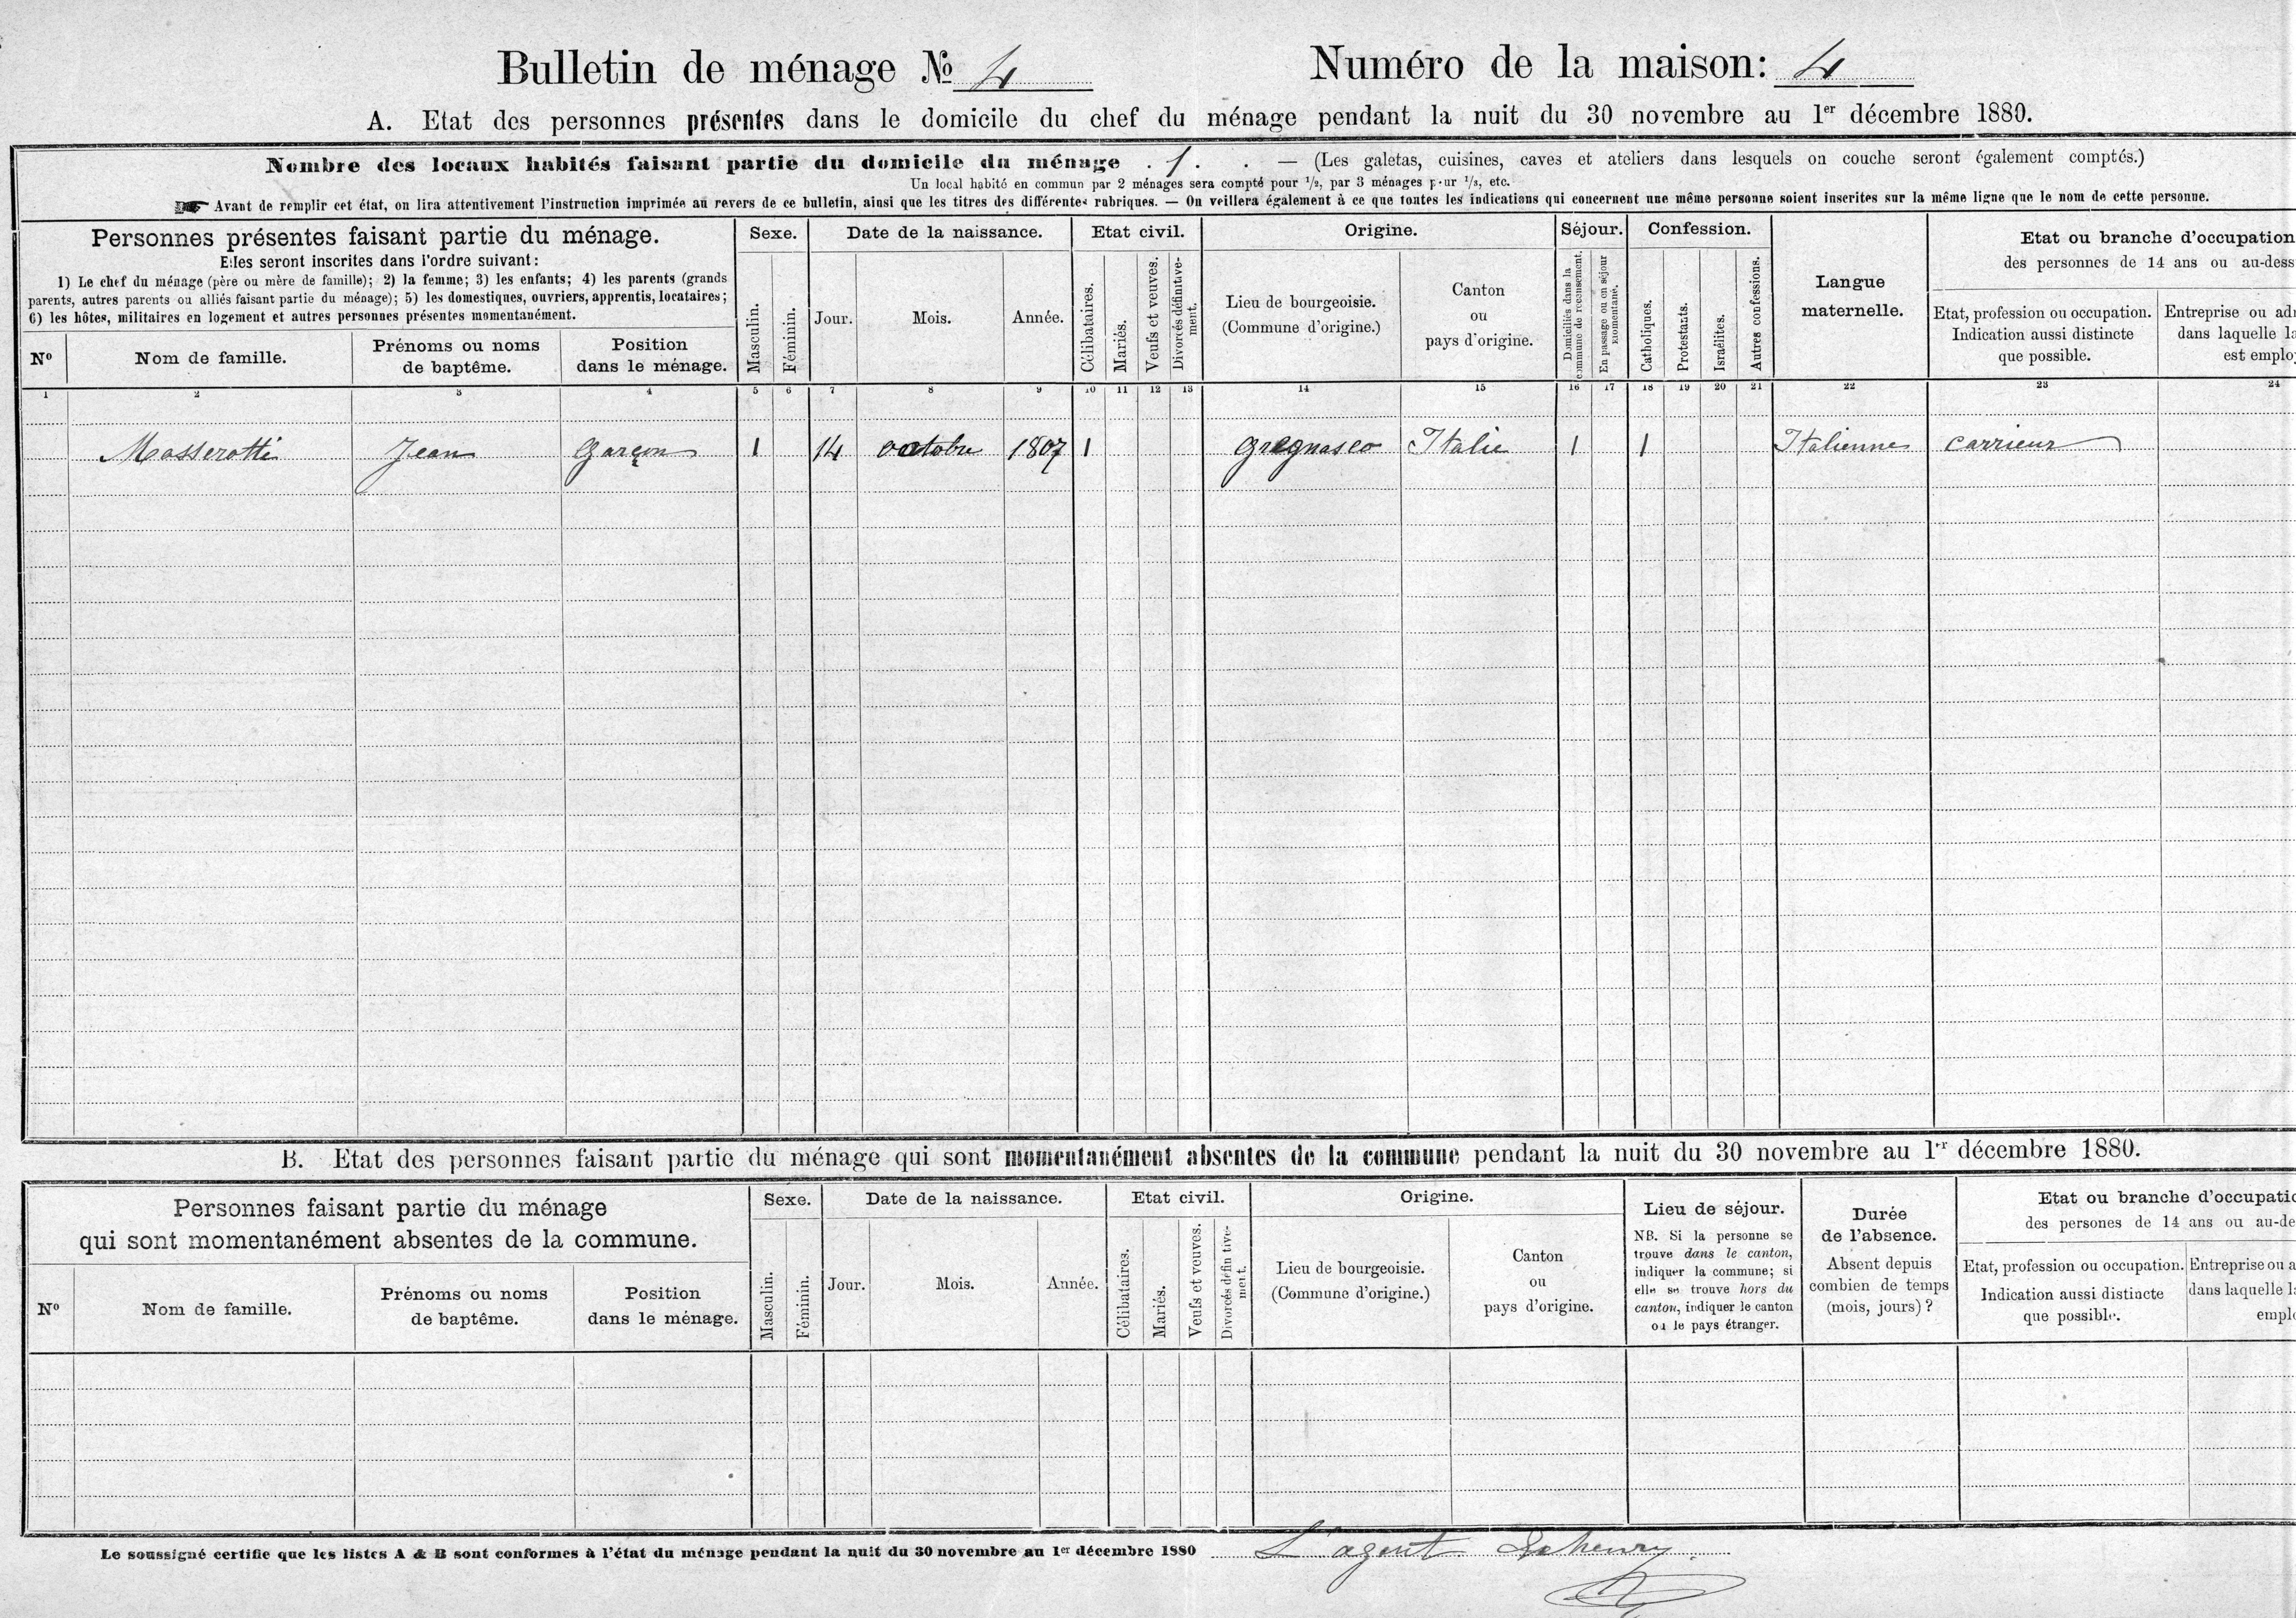 Bulletin de ménage No 4 Numéro de la maison: 4
A. Etat des personnes présentes dans le domicile du chef du ménage pendant la nuit du 30 novembre au 1er décembre 1880.
Nombre des locaux habités faisant partie du domicile du ménage . 1 . . — (Les galetas, cuisines, caves et ateliers dans lesquels on couche seront également comptés.)
Un local habité en commun par 2 ménages sera compté pour 1/2, par 3 ménages pour 1/3, etc.
Avant de remplir cet état, on lira attentivement l'instruction imprimée au revers de ce bulletin, ainsi que les titres des différentes rubriques. — On veillera également à ce que toutes les indications qui concernent une même personne soient inscrites sur la même ligne que le nom de cette personne.
Personnes présentes faisant partie du ménage.
Elles seront inscrites dans l'ordre suivant:
1) Le chef du ménage (père ou mère de famille); 2) la femme; 3) les enfants; 4) les parents (grands
parents, autres parents ou alliés faisant partie du ménage); 5) les domestiques, ouvriers, apprentis, locataires;
6) les hôtes, militaires en logement et autres personnes présentes momentanément.
No
Nom de famille.
Prénoms ou noms
de baptême.
Position
dans le ménage.
Sexe.
Masculin.
Féminin.
Date de la naissance.
Jour.
Mois.
Année.
Etat civil.
Célibataires.
Mariés.
Veufs et veuves.
Divorcés définitive-
ment.
Origine.
Lieu de bourgeoisie.
(Commune d'origine.)
Canton
ou
pays d'origine.
Séjour.
Domiciliés dans la
commune de recensement.
En passage ou en séjour
momentané.
Confession.
Catholiques.
Protestants.
Israélites.
Autres confessions.
Langue
maternelle.
Etat ou branche d'occupation
des personnes de 14 ans ou au-dess
Etat, profession ou occupation.
Indication aussi distincte
que possible.
Entreprise ou ad
dans laquelle la
est emplo
1 2 3 4 5 6 7 8 9 10 11 12 13 14 15 16 17 18 19 20 21 22 23 24
Masserotti Jean garçon 1 14 octobre 1807 1 gregnasco Italie 1 1 Italienne carrieur
B. Etat des personnes faisant partie du ménage qui sont momentanément absentes de la commune pendant la nuit du 30 novembre au 1er décembre 1880.
Personnes faisant partie du ménage
qui sont momentanément absentes de la commune.
No
Nom de famille.
Prénoms ou noms
de baptême.
Position
dans le ménage.
Sexe.
Masculin.
Féminin.
Date de la naissance.
Jour.
Mois.
Année.
Etat civil.
Célibataires.
Mariés.
Veufs et veuves.
Divorcés définitive-
ment.
Origine.
Lieu de bourgeoisie.
(Commune d'origine.)
Canton
ou
pays d'origine.
Lieu de séjour.
NB. Si la personne se
trouve dans le canton,
indiquer la commune; si
elle se trouve hors du
canton, indiquer le canton
ou le pays étranger.
Durée
de l'absence.
Absent depuis
combien de temps
(mois, jours)?
Etat ou branche d'occupatio
des persones de 14 ans ou au-de
Etat, profession ou occupation.
Indication aussi distincte
que possible.
Entreprise ou a
dans laquelle l
emplo
Le soussigné certifie que les listes A & B sont conformes à l'état du ménage pendant la nuit du 30 novembre au 1er décembre 1880 L'agent